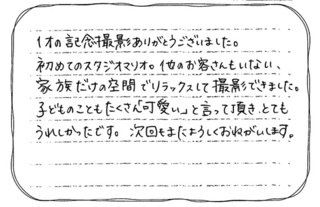 1才の記念撮影ありがとうございました。
初めてのスタジオマリオ。他のお客さんもいない、
家族だけの空間でリラックスして撮影できました。
子どものこともたくさん「可愛い」と言って頂き、とても
うれしかったです。次回もまたよろしくおねがいします。